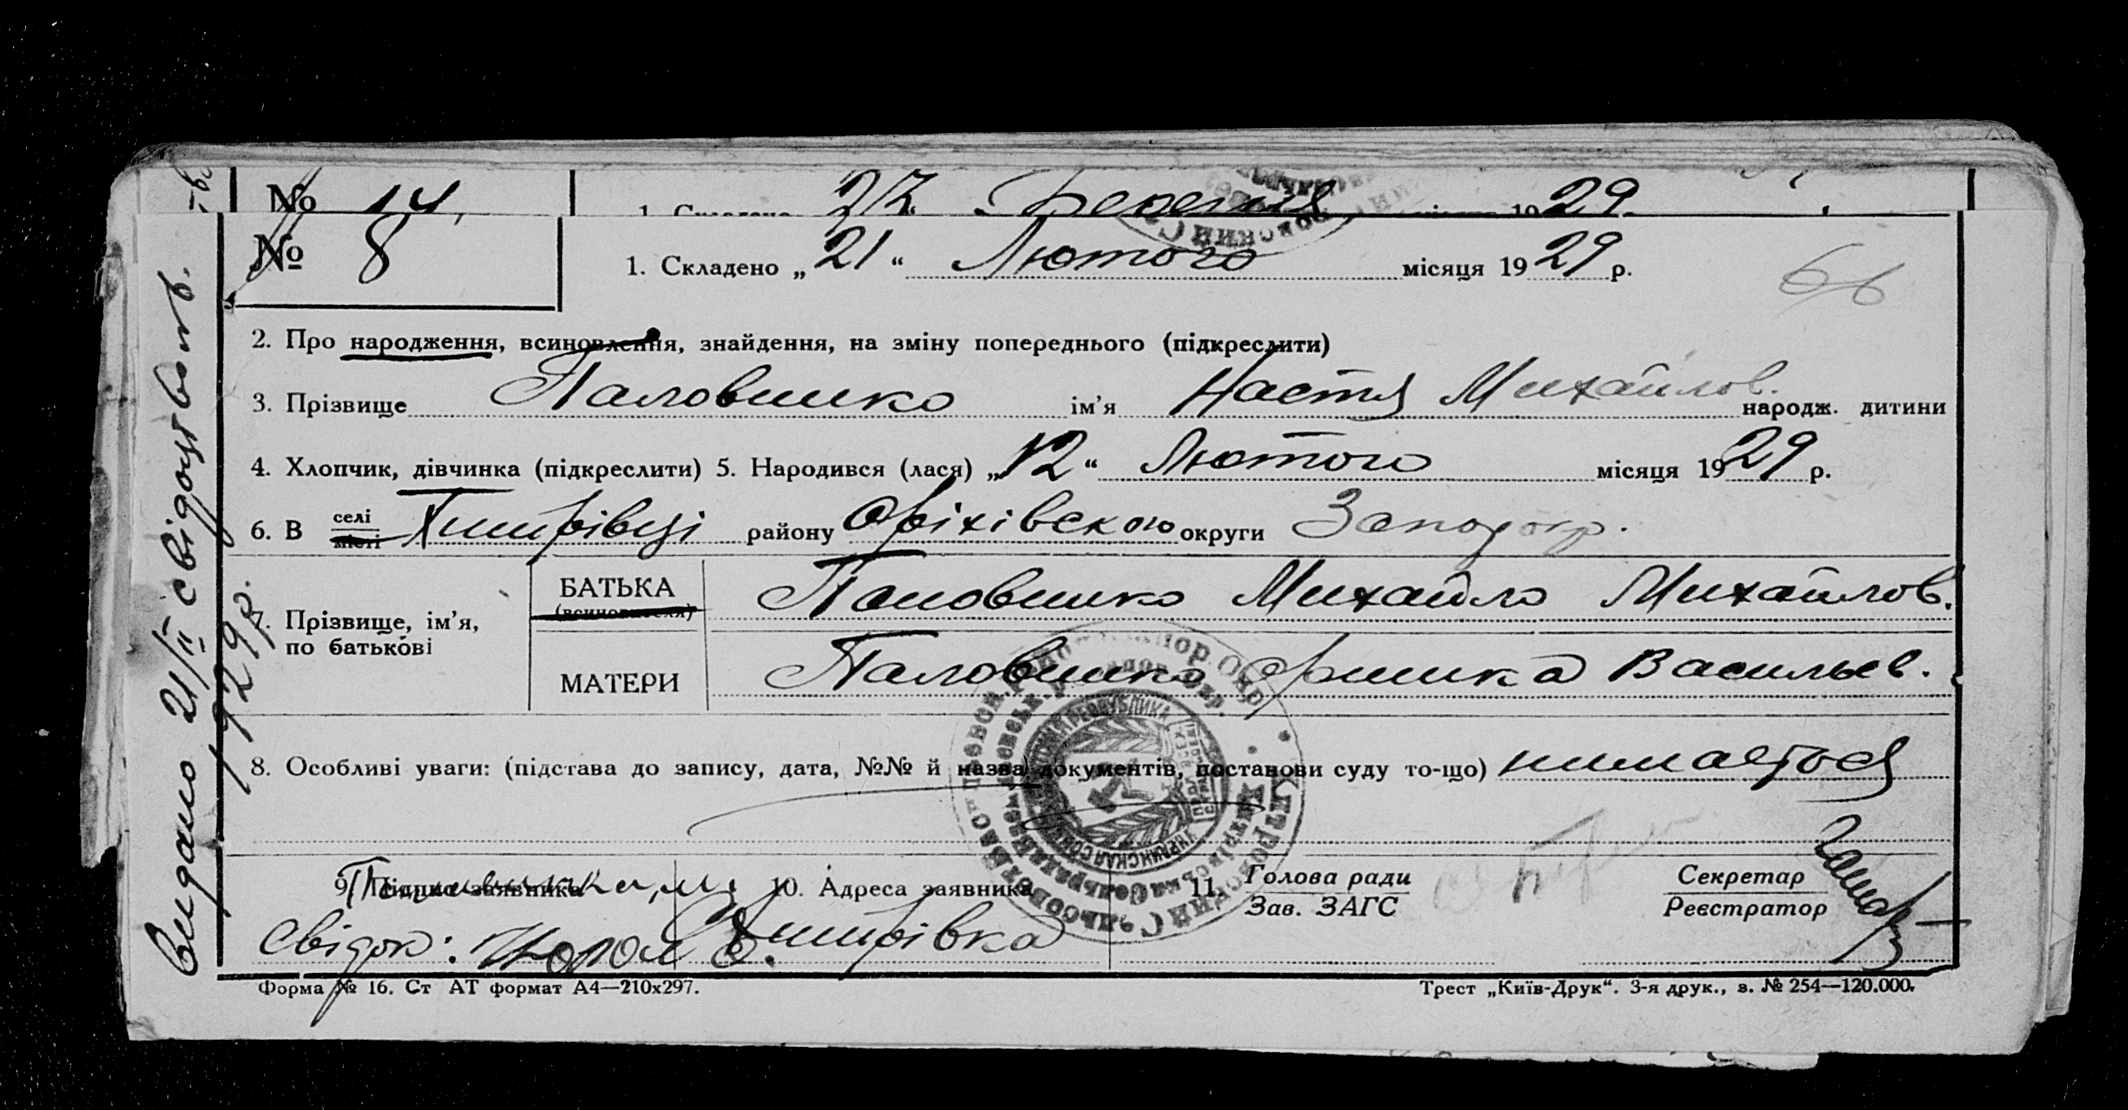 № 14
1. Складено 27 Березня місяця 1929
№ 8
1. Складено „21“ Лютого місяця 1929 р.
66
2. Про народження, всиновлення, знайдення, на зміну попереднього (підкреслити)
3. Прізвище Паловшко ім'я Настя Михайлов. народж. дитини
4. Хлопчик, дівчинка (підкреслити) 5. Народився (лася) „12“ Лютого місяця 1929 р.
6. В селі місті району Оріхівскою округи
7. Прізвище, ім'я, по батькові
БАТЬКА (всиновителя) Михайло Михайлов.
МАТЕРИ Паловшко Оришка Васильев.
8. Особливі уваги: (підстава до запису, дата, №№ й назва документів, постанови суду то-що) нимаеться
9. Підпис заявника
10. Адреса заявника
11. Голова ради
Зав. ЗАГС
Секретар
Реєстратор
Свідок:
Форма № 16. Ст АТ формат А4—210х297.
Трест „Київ-Друк“. 3-я друк., з. № 254—120.000.
Видано 21/II свідоцтво
1929р.